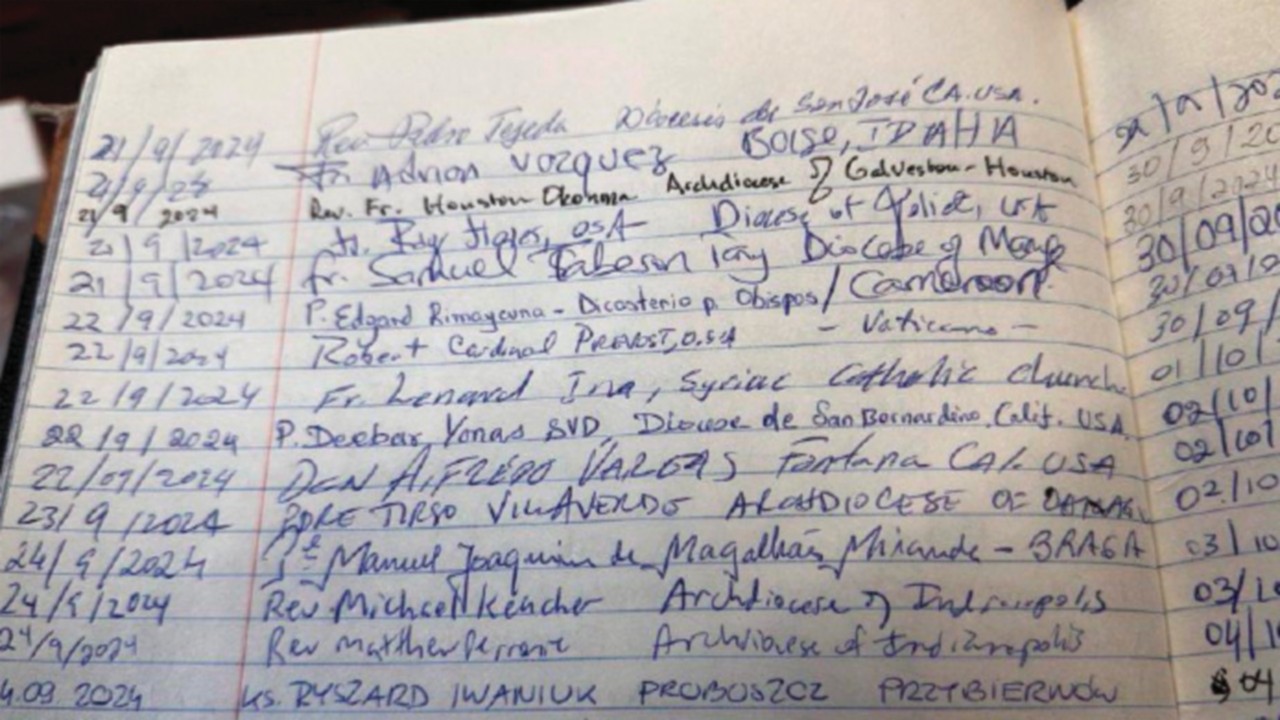 21/9/2024 Rev. Pedro Tejeda Diocesis de San José CA. USA.
Fr. Adrian Vazquez BOISE, IDAHA
21/9/2024 Rev. Fr. Houston Okonma Archdiocese of Galveston-Houston
21/9/2024 Fr. Ray OSA Diocese of Joliet, USA
21/9/2024 fr. Samuel Diocese of
22/9/2024 P. Edgard Rimaycuna - Dicasterio p. Obispos / Cameroon.
22/9/2024 Robert Cardinal PREVOST, O.S.A - Vaticano -
22/9/2024 Fr. Lenard Ina, Syriac Catholic church
22/9/2024 P. Deebar Yonas SVD, Diocese de San Bernardino, Calif. USA
22/09/2024 DCN ALFREDO VARGAS Fontana CAL USA
23/9/2024 TIRSO VILLAVERDE ARCHDIOCESE OF
24/9/2024 Manuel Joaquim de Magalhães Miranda - BRAGA
24/9/2024 Rev Michael Keucher Archdiocese of Indianapolis
24/9/2024 Rev Matthew Perronie Archdiocese of Indianapolis
4.09.2024 KS. RYSZARD IWANIUK PROBOSZCZ PRZYBIERNÓW
30/9/20
30/9/2024
30/09/20
30/09/
01/10/
02/10/
02/10/
02/10
03/10
03/10
04/1
04